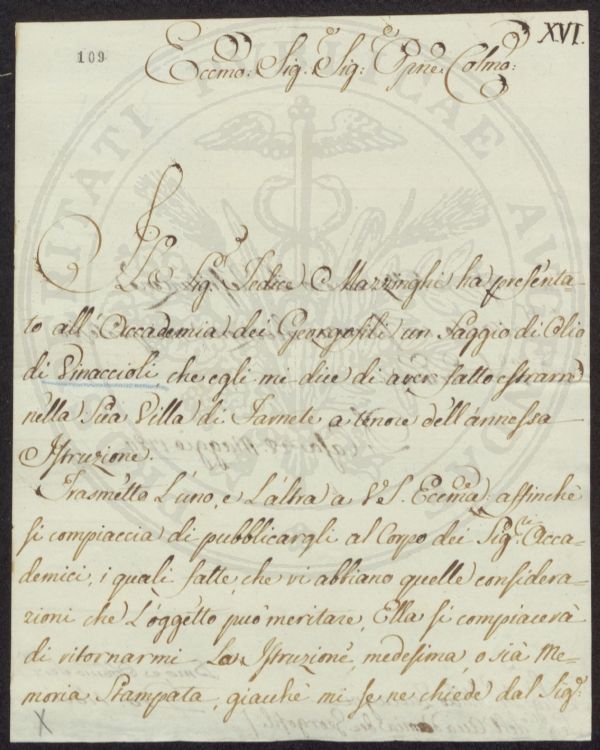 XVI.
109
Eccmo: Sig.e Sig: Pne. Colmo:
Il Sig.e Iudice Mazzinghi ha presenta-
to all'Accademia dei Georgofili un Saggio di Olio
di Vinaccioli, che egli mi dice di aver fatto estrarre
nella Sua Villa di Farneto a tenore dell'annessa
Istruzione.
Trasmetto L'uno, e L'altra a V.S. Eccma: affinchè
si compiaccia di pubblicargli al Corpo dei Sig.ri Acca-
demici, i quali fatte, che vi abbiano quelle considera-
zioni che L'oggetto può meritare, Ella si compiacerà
di ritornarmi La Istruzione medesima, o sià Me-
moria Stampata, giacchè mi se ne chiede dal Sig.
X